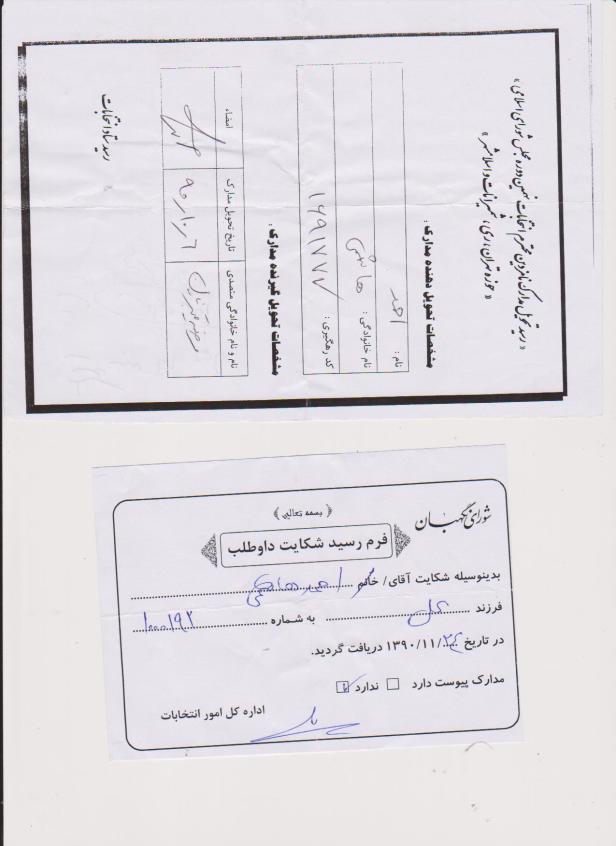 « رسید تحویل مدارک نامزدین محترم انتخابات نهمین دوره مجلس شورای اسلامی »
« حوزه تهران، ری، شمیرانات و اسلامشهر »
مشخصات تحویل دهنده مدارک :
نام : احمد
نام خانوادگی : هاشمی
کد رهگیری : ۱۶۹۱۷۷۷
مشخصات تحویل گیرنده مدارک :
نام و نام خانوادگی متصدی
تاریخ تحویل مدارک
امضاء
۹۰٫۱۰٫۶
رسید ستاد انتخابات
شورای نگهبان
﴿ بسمه تعالی ﴾
فرم رسید شکایت داوطلب
بدینوسیله شکایت آقای/ خانم احمد هاشمی
فرزند به شماره ۱۰۰۰۱۹۲
در تاریخ ۱۳۹۰/۱۱/۲۴ دریافت گردید.
مدارک پیوست دارد ندارد
اداره کل امور انتخابات